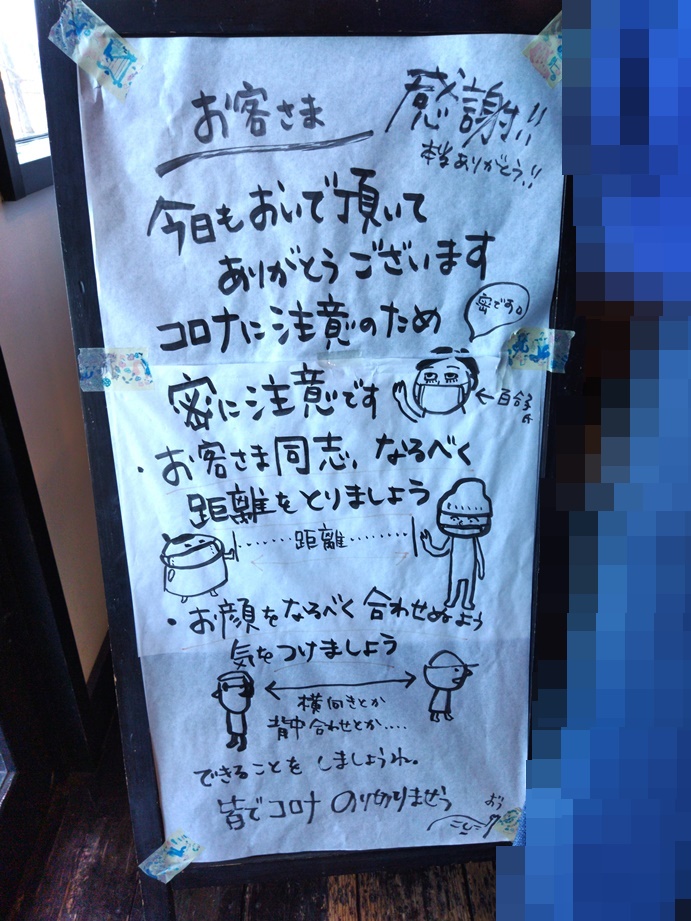 お客さま
感謝!!
本当ありがとう!!
今日もおいで頂いて
ありがとうございます
コロナに注意のため
密です。
密に注意です
←百合子氏
・お客さま同志、なるべく
距離をとりましょう
距離
・お顔をなるべく合わせぬよう
気をつけましょう
横向きとか
背中合わせとか....
できることをしましょうね。
皆でコロナのり切りませう
おう